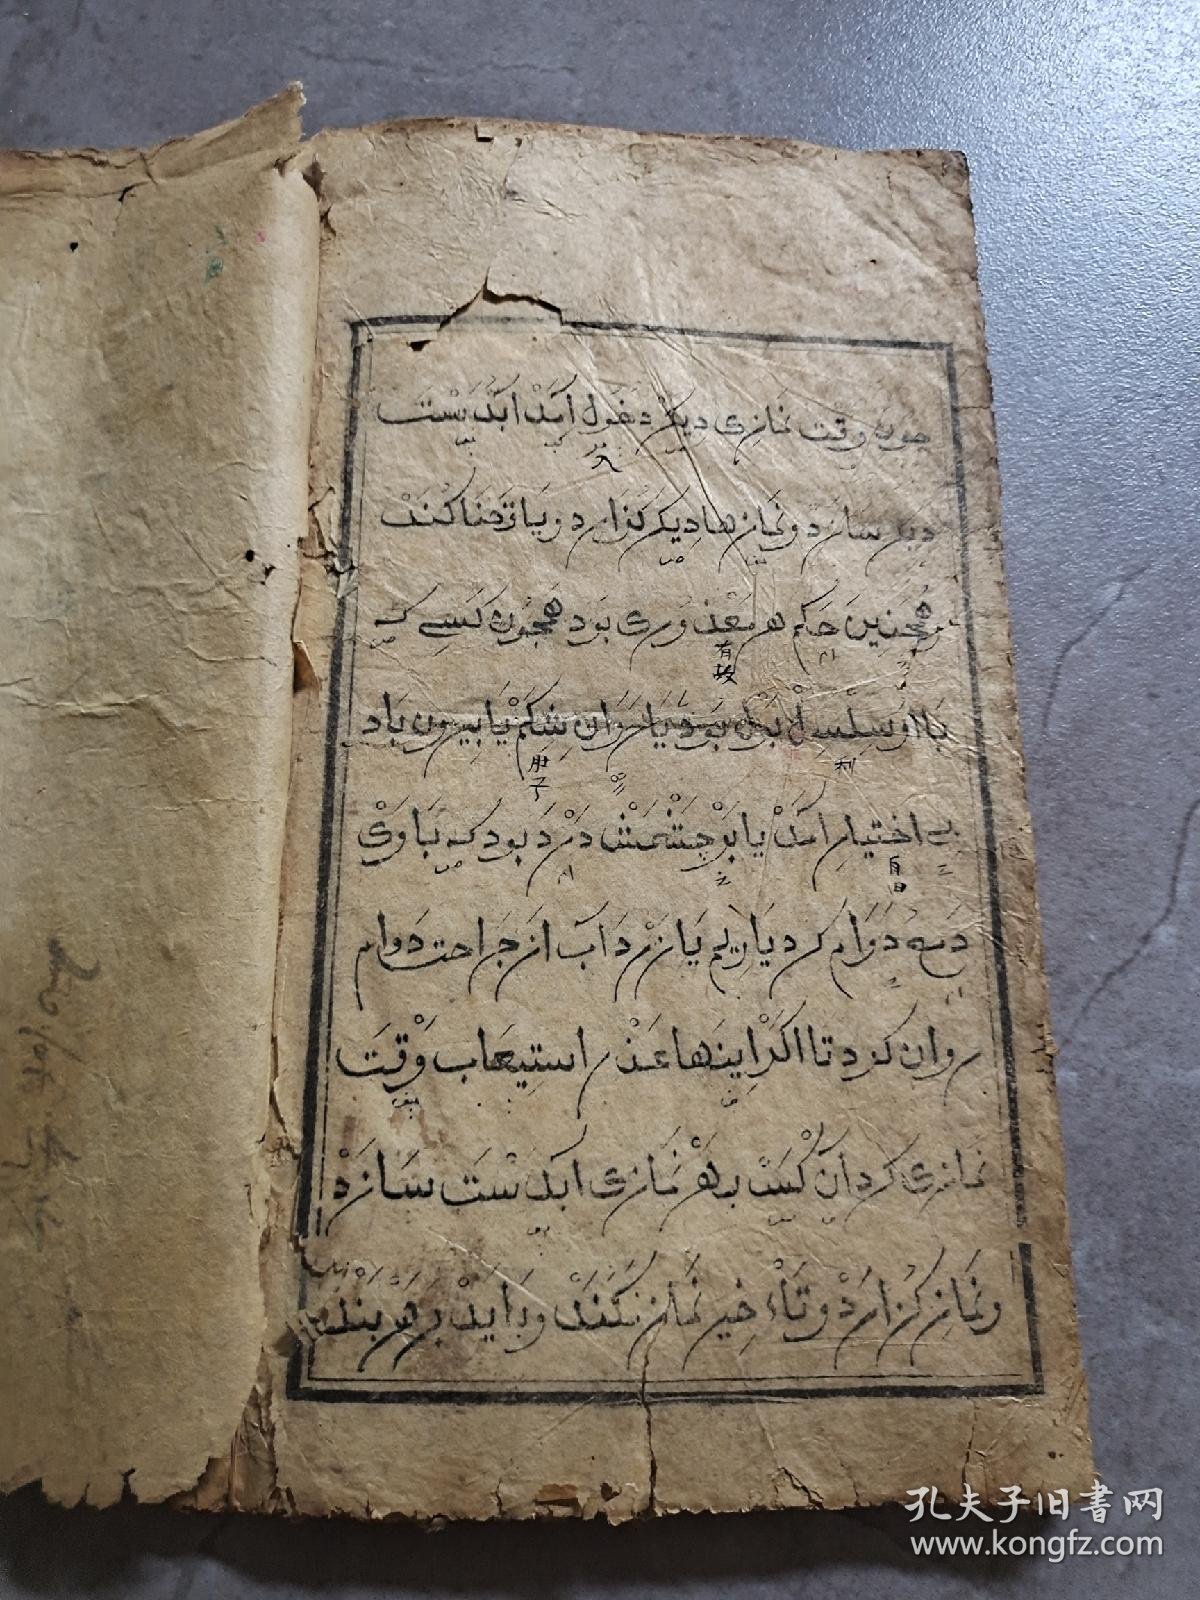 چون وقت نمازی دیگر دخول آید آبدست
دیگر سازد و نمازها دیگر گزارد و یا قضا کند
入
و همچنین حکم هر معذوری بود همچون کسے که
有故
با او سلسل بول بود یا روان شکم یا بیرون باد
肚子
利
بے اختیار آمدن یا بر چشمش درد بود که با وی
自由
دمعه دوام کرد یا ریم یا زرداب از جراحت دوام
روان کرد تا اگر اینها عذر استیعاب وقت
نمازی کرد آن کس بهر نمازی آبدست سازد
و نماز گزارد و تاخیر نماز نکند و باید بر هر بنده
孔夫子旧书网
www.kongfz.com